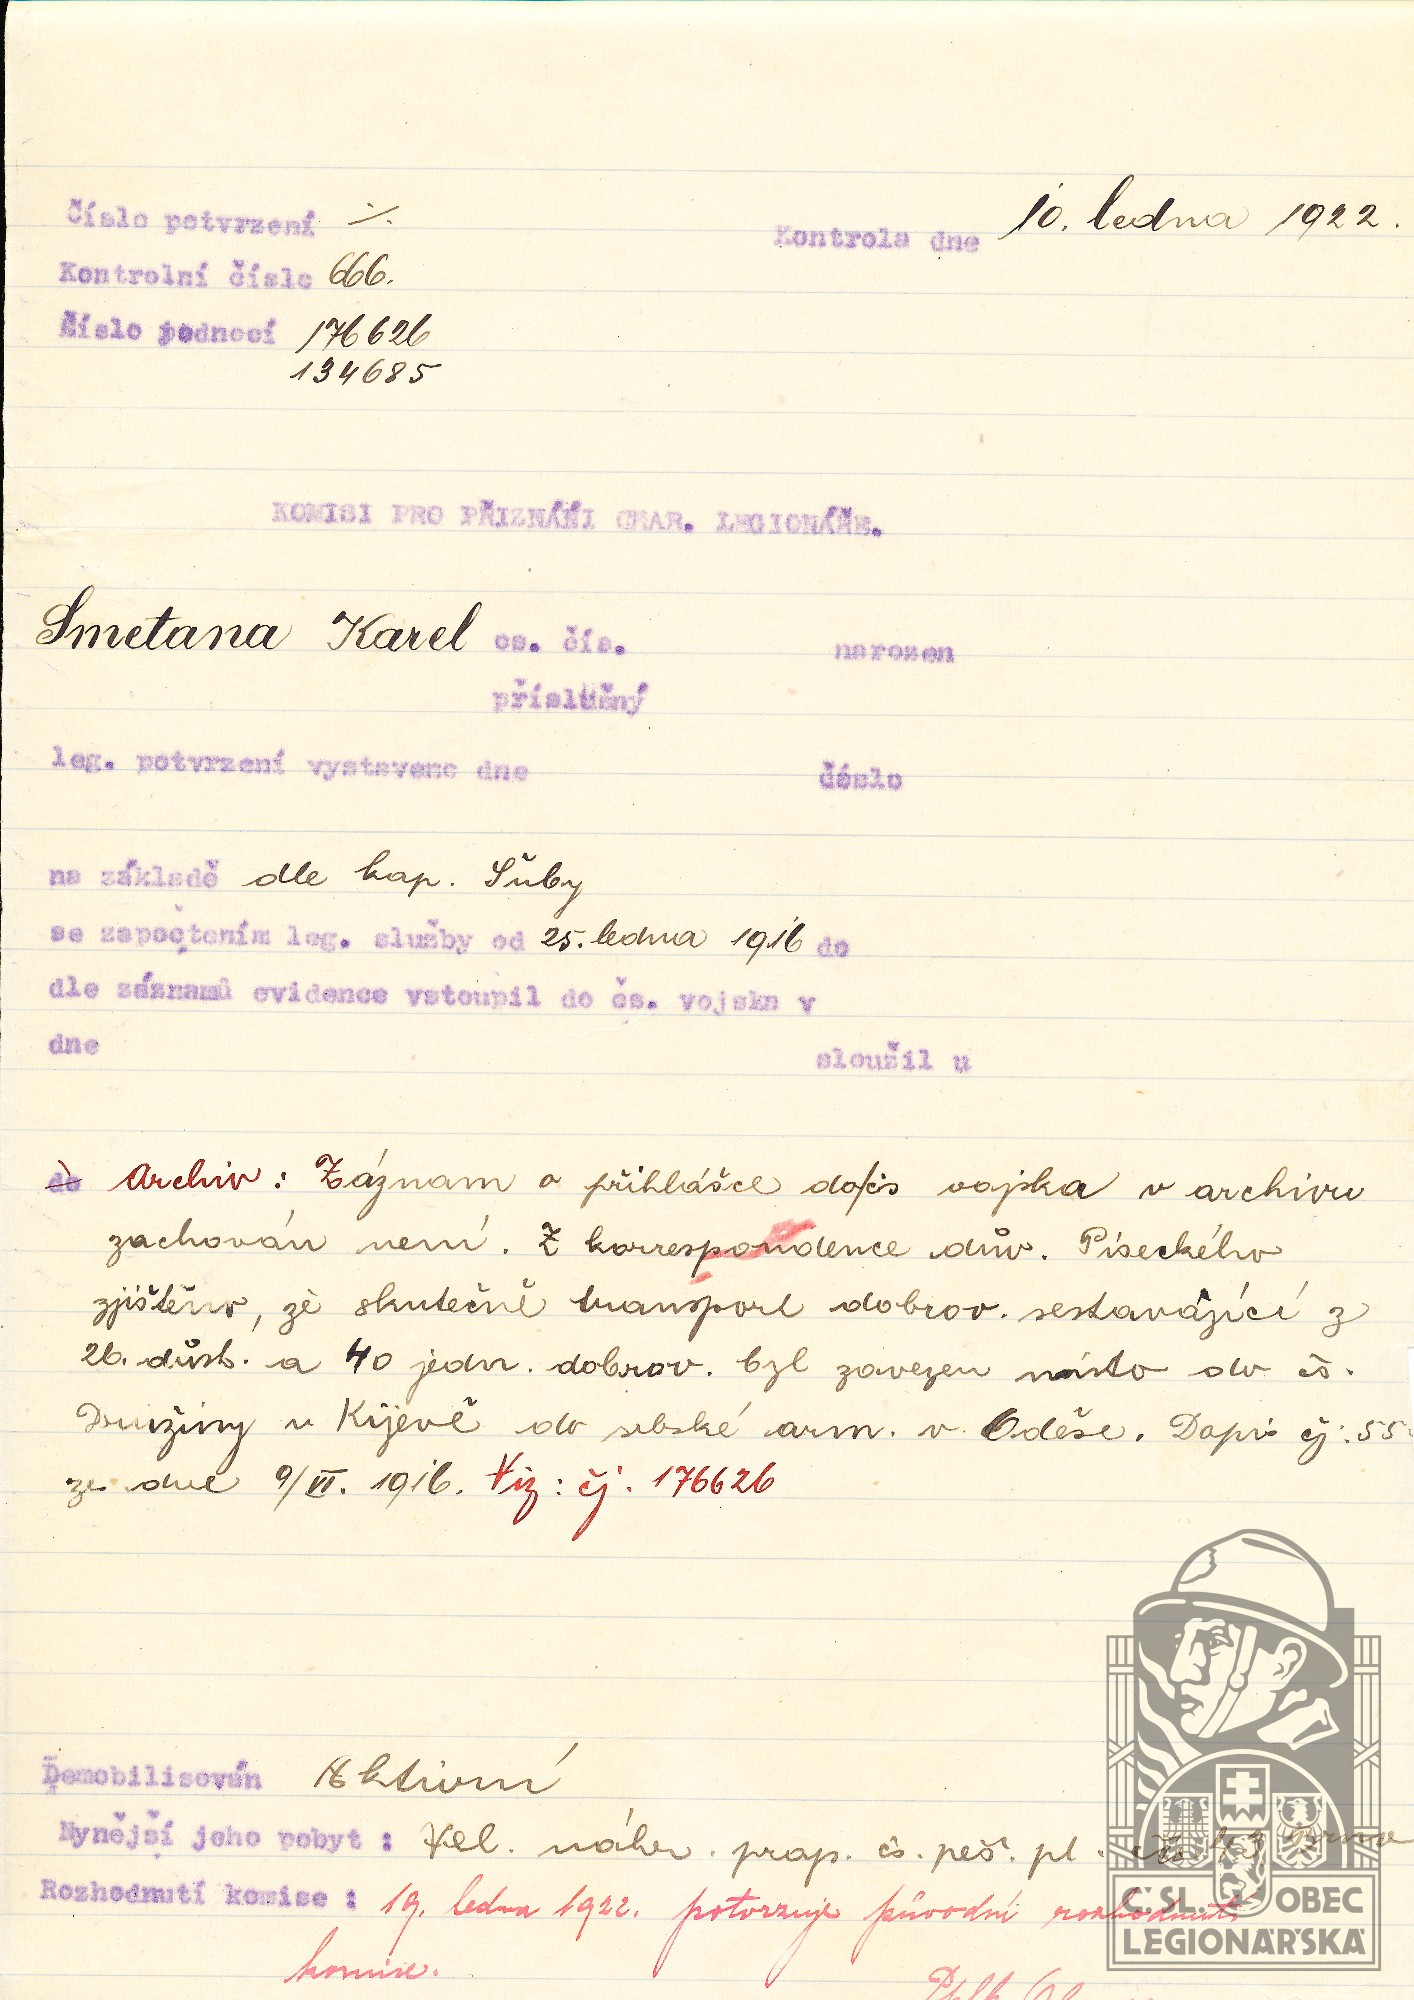 Číslo potvrzení ·/·
Kontrola dne 10. ledna 1922.
Kontrolní číslo 666.
Číslo podnocí 176626
134685
KOMISI PRO PŘIZNÁNÍ CHAR. LEGIONÁŘE.
Smetana Karel os. čís. narozen
příslušný
leg. potvrzení vystaveno dne číslo
na základě dle kap. Sůby
se započtením leg. služby od 25. ledna 1916 do
dle záznamů evidence vstoupil do čs. vojska v
dne sloužil u
do Archiv: Záznam o přihlášce do čs vojska v archivu
zachován není. Z korrespondence dův. Píseckého
zjištěno, že skutečně transport dobrov. sestavající z
26. důst. a 40 jedn. dobrov. byl zavezen místo do čs.
Družiny v Kijevě do srbské arm. v Oděse. Dopis čj. 55
ze dne 9/VI. 1916. Viz: čj. 176626
Demobilisován Aktivní
Nynější jeho pobyt: Vel. náhr. prap. čs. peš. pl. čís 43 Brno
Rozhodnutí komise: 19. ledna 1922. potvrzuje původní rozhodnutí
komise.
ČSL. OBEC
LEGIONÁŘSKÁ